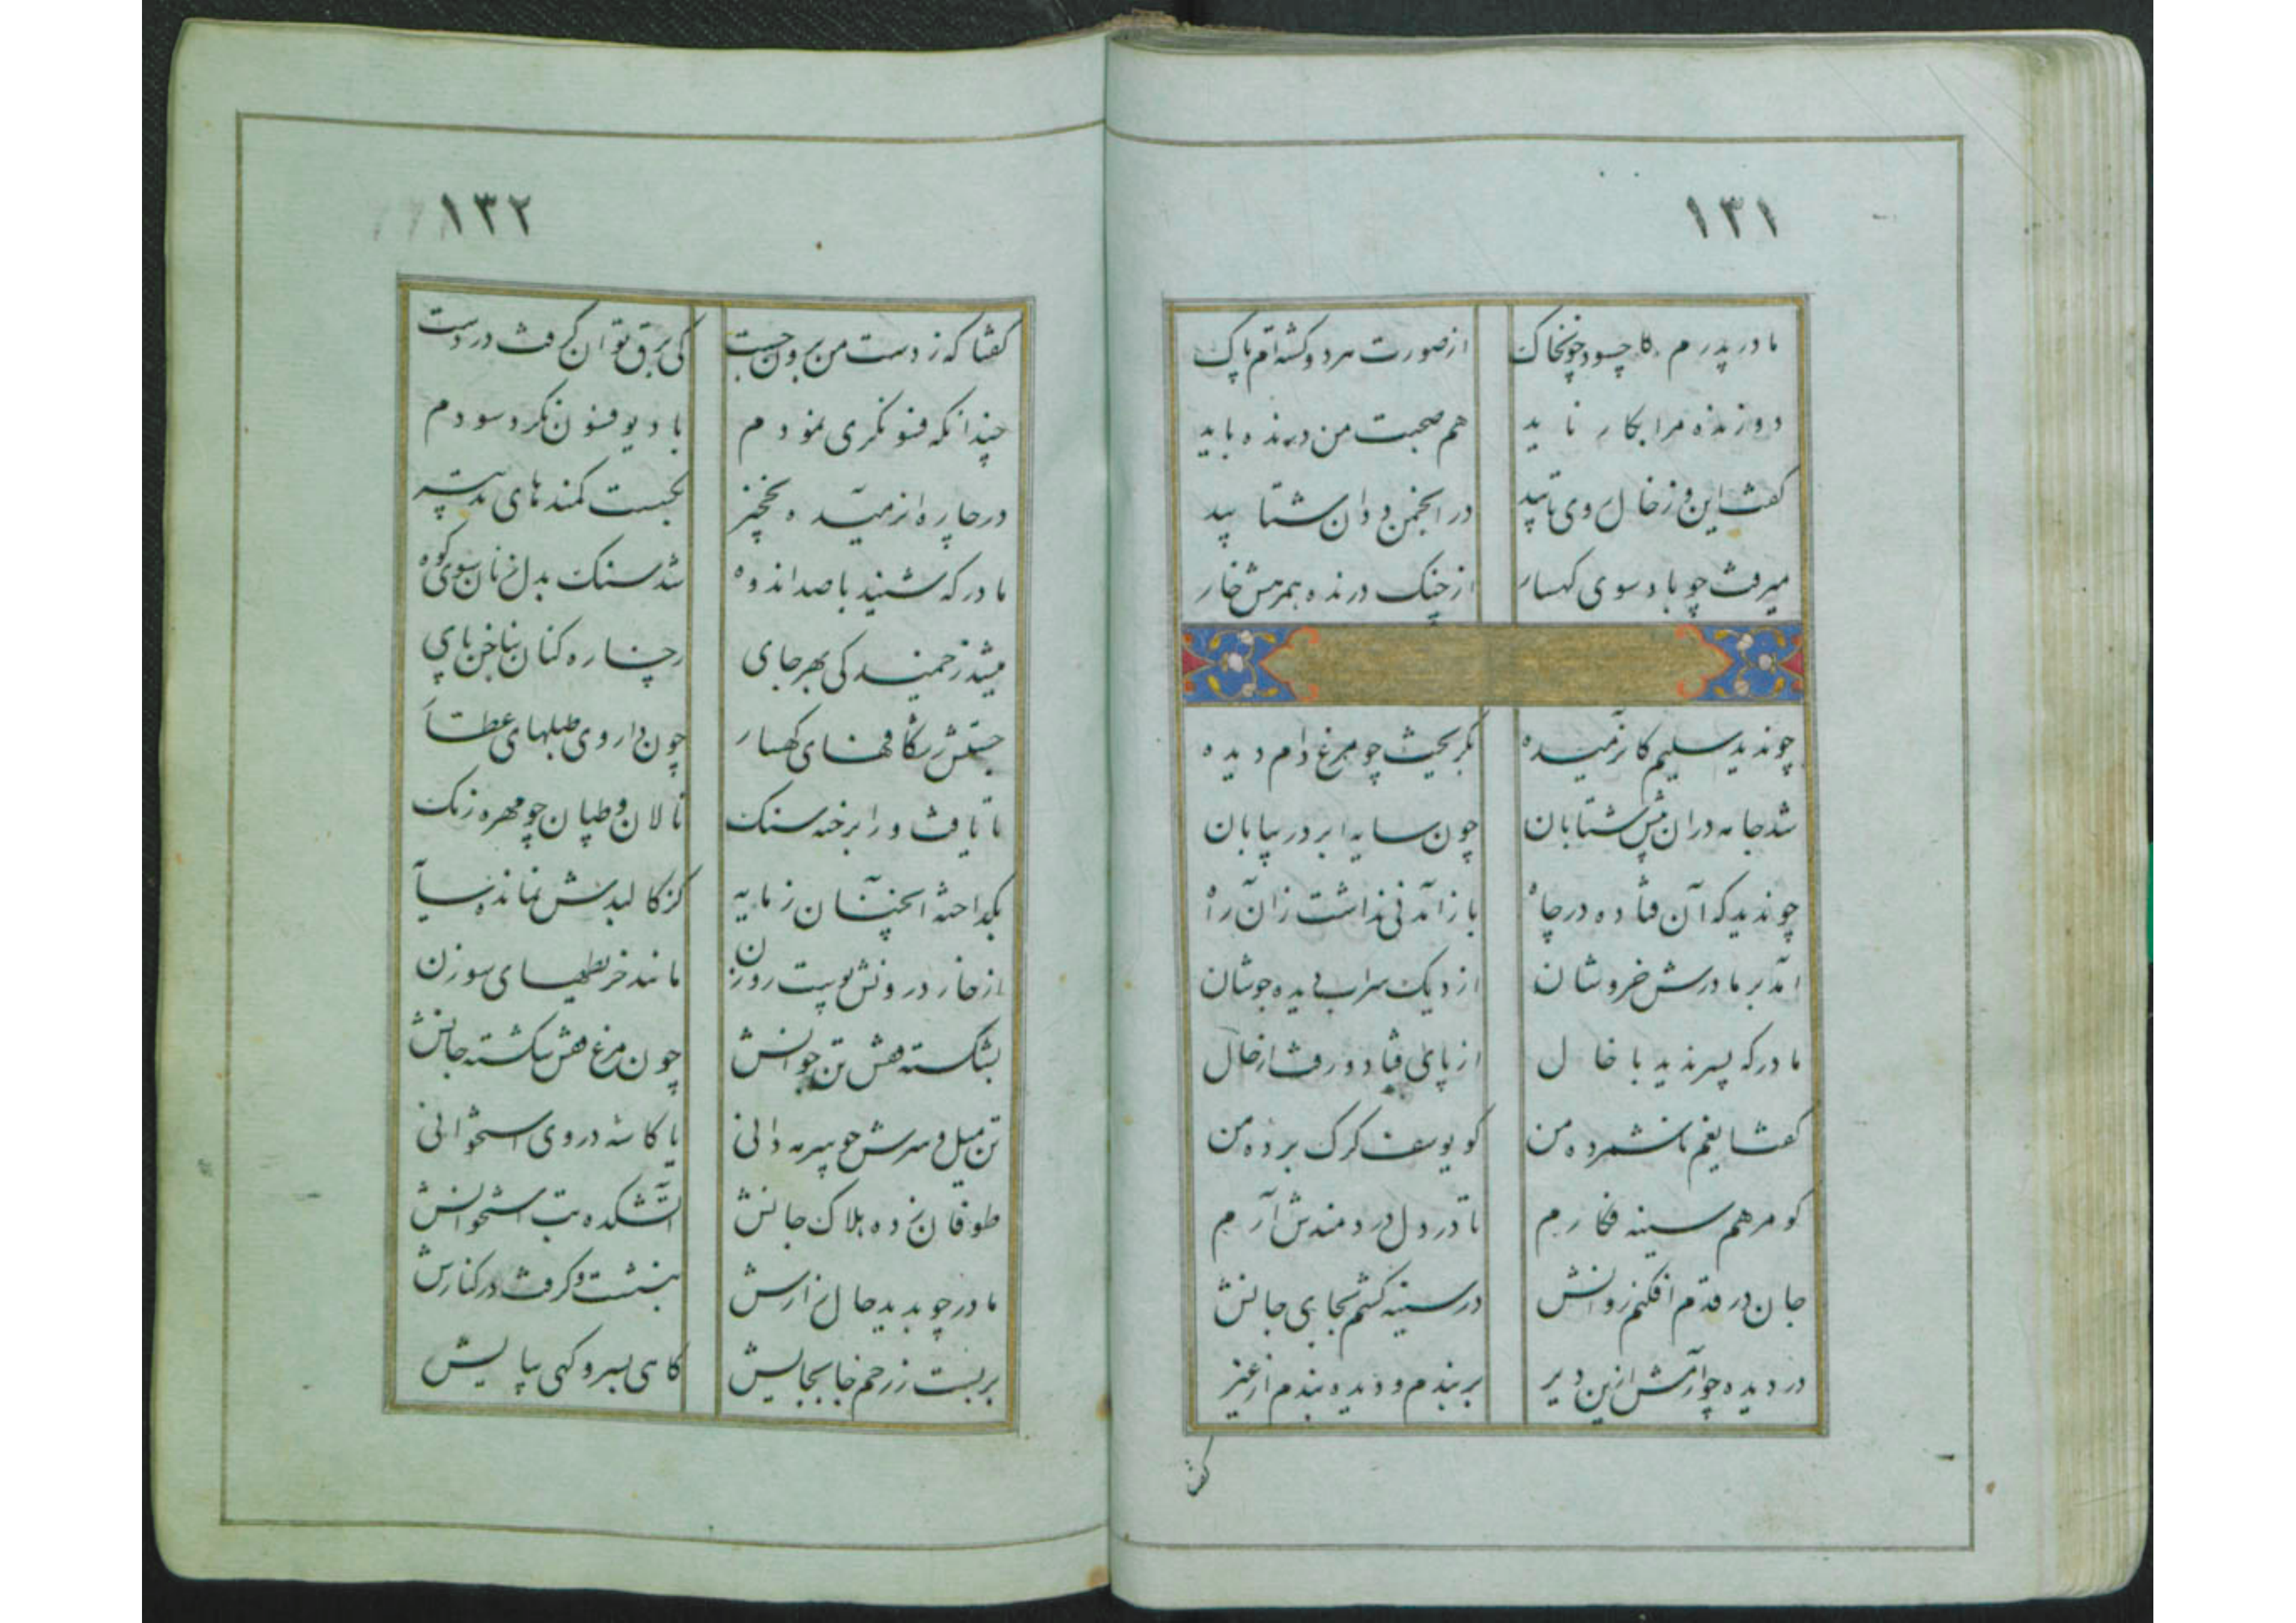 ۱۳۱
مادر پدرم کا چسود چونخاک از صورت هر دو کشته‌ام پاک
دوزنده مرا بکار ناید هم صحبت من درنده باید
کفت این و ز خال روی تابید در انجمن ددان شتابید
میرفت چو باد سوی کهسار از چنک درنده همرهش خار
چوندید سلیم کارمیده بکریخت چو مرغ دام دیده
شد جامه دران پیش شتابان چون سایه ابر در بیابان
چوندید که آن فتاده در چاه باز آمدنی نداشت زان راه
امد بر مادرش خروشان از دیک سراب دیده جوشان
مادر که پسر ندید با خال از پای فتاد و رفت از حال
کفتا بغم ناشمرده من کو یوسف کرک برده من
کو مرهم سینه فکارم تا در دل دردمندش آرم
جان در قدم افکنم روانش در سینه کشم بجای جانش
در دیده چو آرمش ازین دیر بربندم و دیده بندم از غیر
کفتا
۱۳۲
کفتا که ز دست من برون جست کی برق توان کرفت در دست
چندانکه فسونکری نمودم با دیو فسون نکرد سودم
در چاره ان رمیده نخجیر بکسست کمندهای تدبیر
مادر که شنید با صد اندوه شد سنک بدل زنان سوی کوه
میشد ز خمیدکی بهر جای رخساره کنان بناخن پای
جستش شکافهای کهسار چون داروی طبلهای عطار
تا یافت ورا برخنه سنک نالان و طپان چو مهره زنک
بکداخته انچنان ز مایه کز کالبدش نمانده سایه
از خار درونش پوست روزن مانند خریطهای سوزن
بشکسته قفس تن جوانش چون مرغ قفس شکسته جانش
تن میل و سرش چو سرمه دانی یا کاسه در وی استخوانی
طوفان زده هلاک جانش آتشکده تب استخوانش
مادر چو بدید حال زارش بنشست و کرفت در کنارش
بربست ز زخم جابجایش کاهی بسر و کهی بپایش